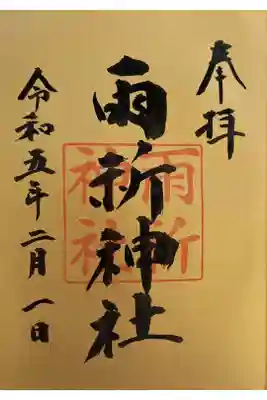 奉拝
雨祈神社
雨祈神社
令和五年二月一日